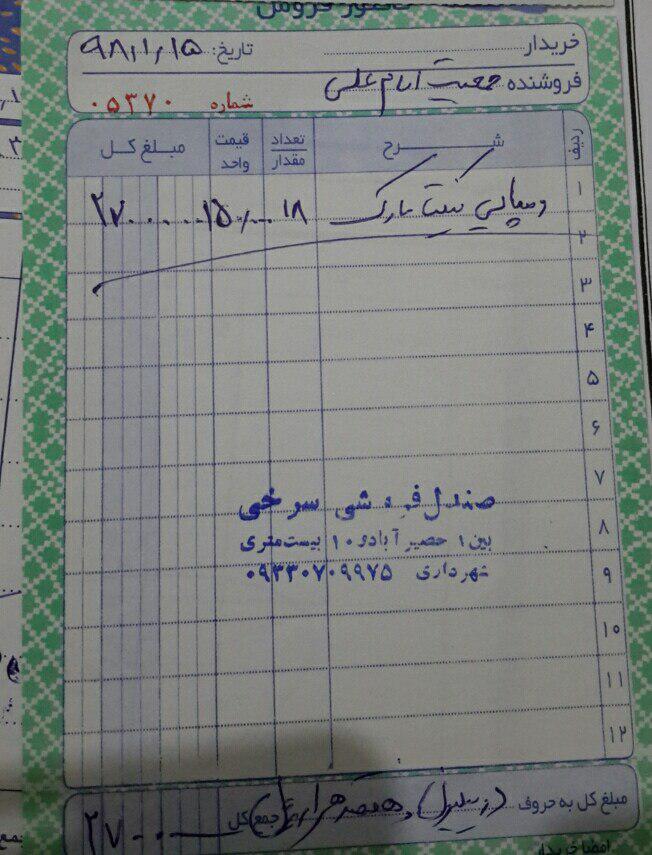 خریدار
تاریخ: ۹۸/۱/۱۵
فروشنده جمعیت امام علی
شماره ۰۵۳۷۰
ردیف شرح تعداد مقدار قیمت واحد مبلغ کل
۱ دمپایی ۱۸ ۱۵۰/۰۰۰ ۲۷۰۰۰۰۰
۲
۳
۴
۵
۶
۷
۸
۹
۱۰
۱۱
۱۲
صندل فروشی سرخی
بین ۱ حصیر آباد و ۱۰ بیست متری
شهرداری ۰۹۳۳۰۷۰۹۹۷۵
مبلغ کل به حروف دو میلیون و هفتصد هزار ریال جمع کل ۲۷۰۰۰۰۰